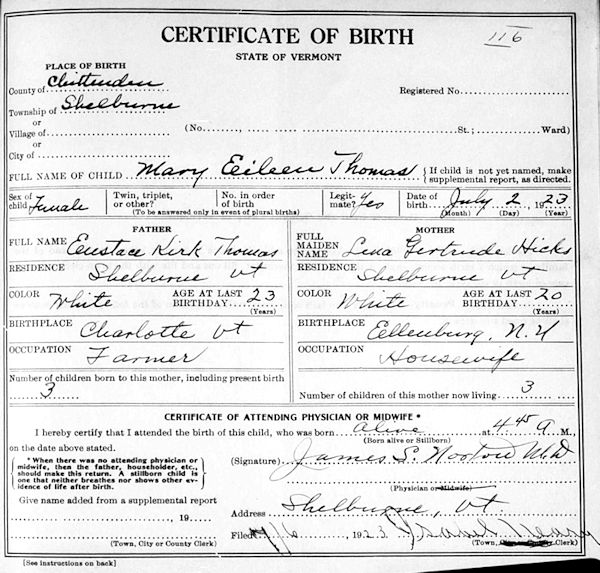 CERTIFICATE OF BIRTH
116
STATE OF VERMONT
PLACE OF BIRTH
County of Chittenden Registered No.
Township of Shelburne
or
Village of (No. , St.; Ward)
or
City of
FULL NAME OF CHILD Mary Eileen Thomas { If child is not yet named, make supplemental report, as directed.
Sex of child Female Twin, triplet, or other? No. in order of birth Legitimate? Yes Date of birth July 2, 1923
(To be answered only in event of plural births) (Month) (Day) (Year)
FATHER MOTHER
FULL NAME Eustace Kirk Thomas FULL MAIDEN NAME Lena Gertrude Hicks
RESIDENCE Shelburne Vt RESIDENCE Shelburne Vt
COLOR White AGE AT LAST BIRTHDAY 23 (Years) COLOR White AGE AT LAST BIRTHDAY 20 (Years)
BIRTHPLACE Charlotte Vt BIRTHPLACE Ellenburg, N.Y
OCCUPATION Farmer OCCUPATION Housewife
Number of children born to this mother, including present birth 3 Number of children of this mother now living 3
CERTIFICATE OF ATTENDING PHYSICIAN OR MIDWIFE *
I hereby certify that I attended the birth of this child, who was born alive at 4 45 a M.,
on the date above stated. (Born alive or Stillborn)
{ * When there was no attending physician or midwife, then the father, householder, etc., should make this return. A stillborn child is one that neither breathes nor shows other evidence of life after birth. }
(Signature) James S. M.D.
(Physician or Midwife)
Give name added from a supplemental report
, 19
Address Shelburne, Vt.
Filed 1923
(Town, City or County Clerk) (Town, City or County Clerk)
[See instructions on back]